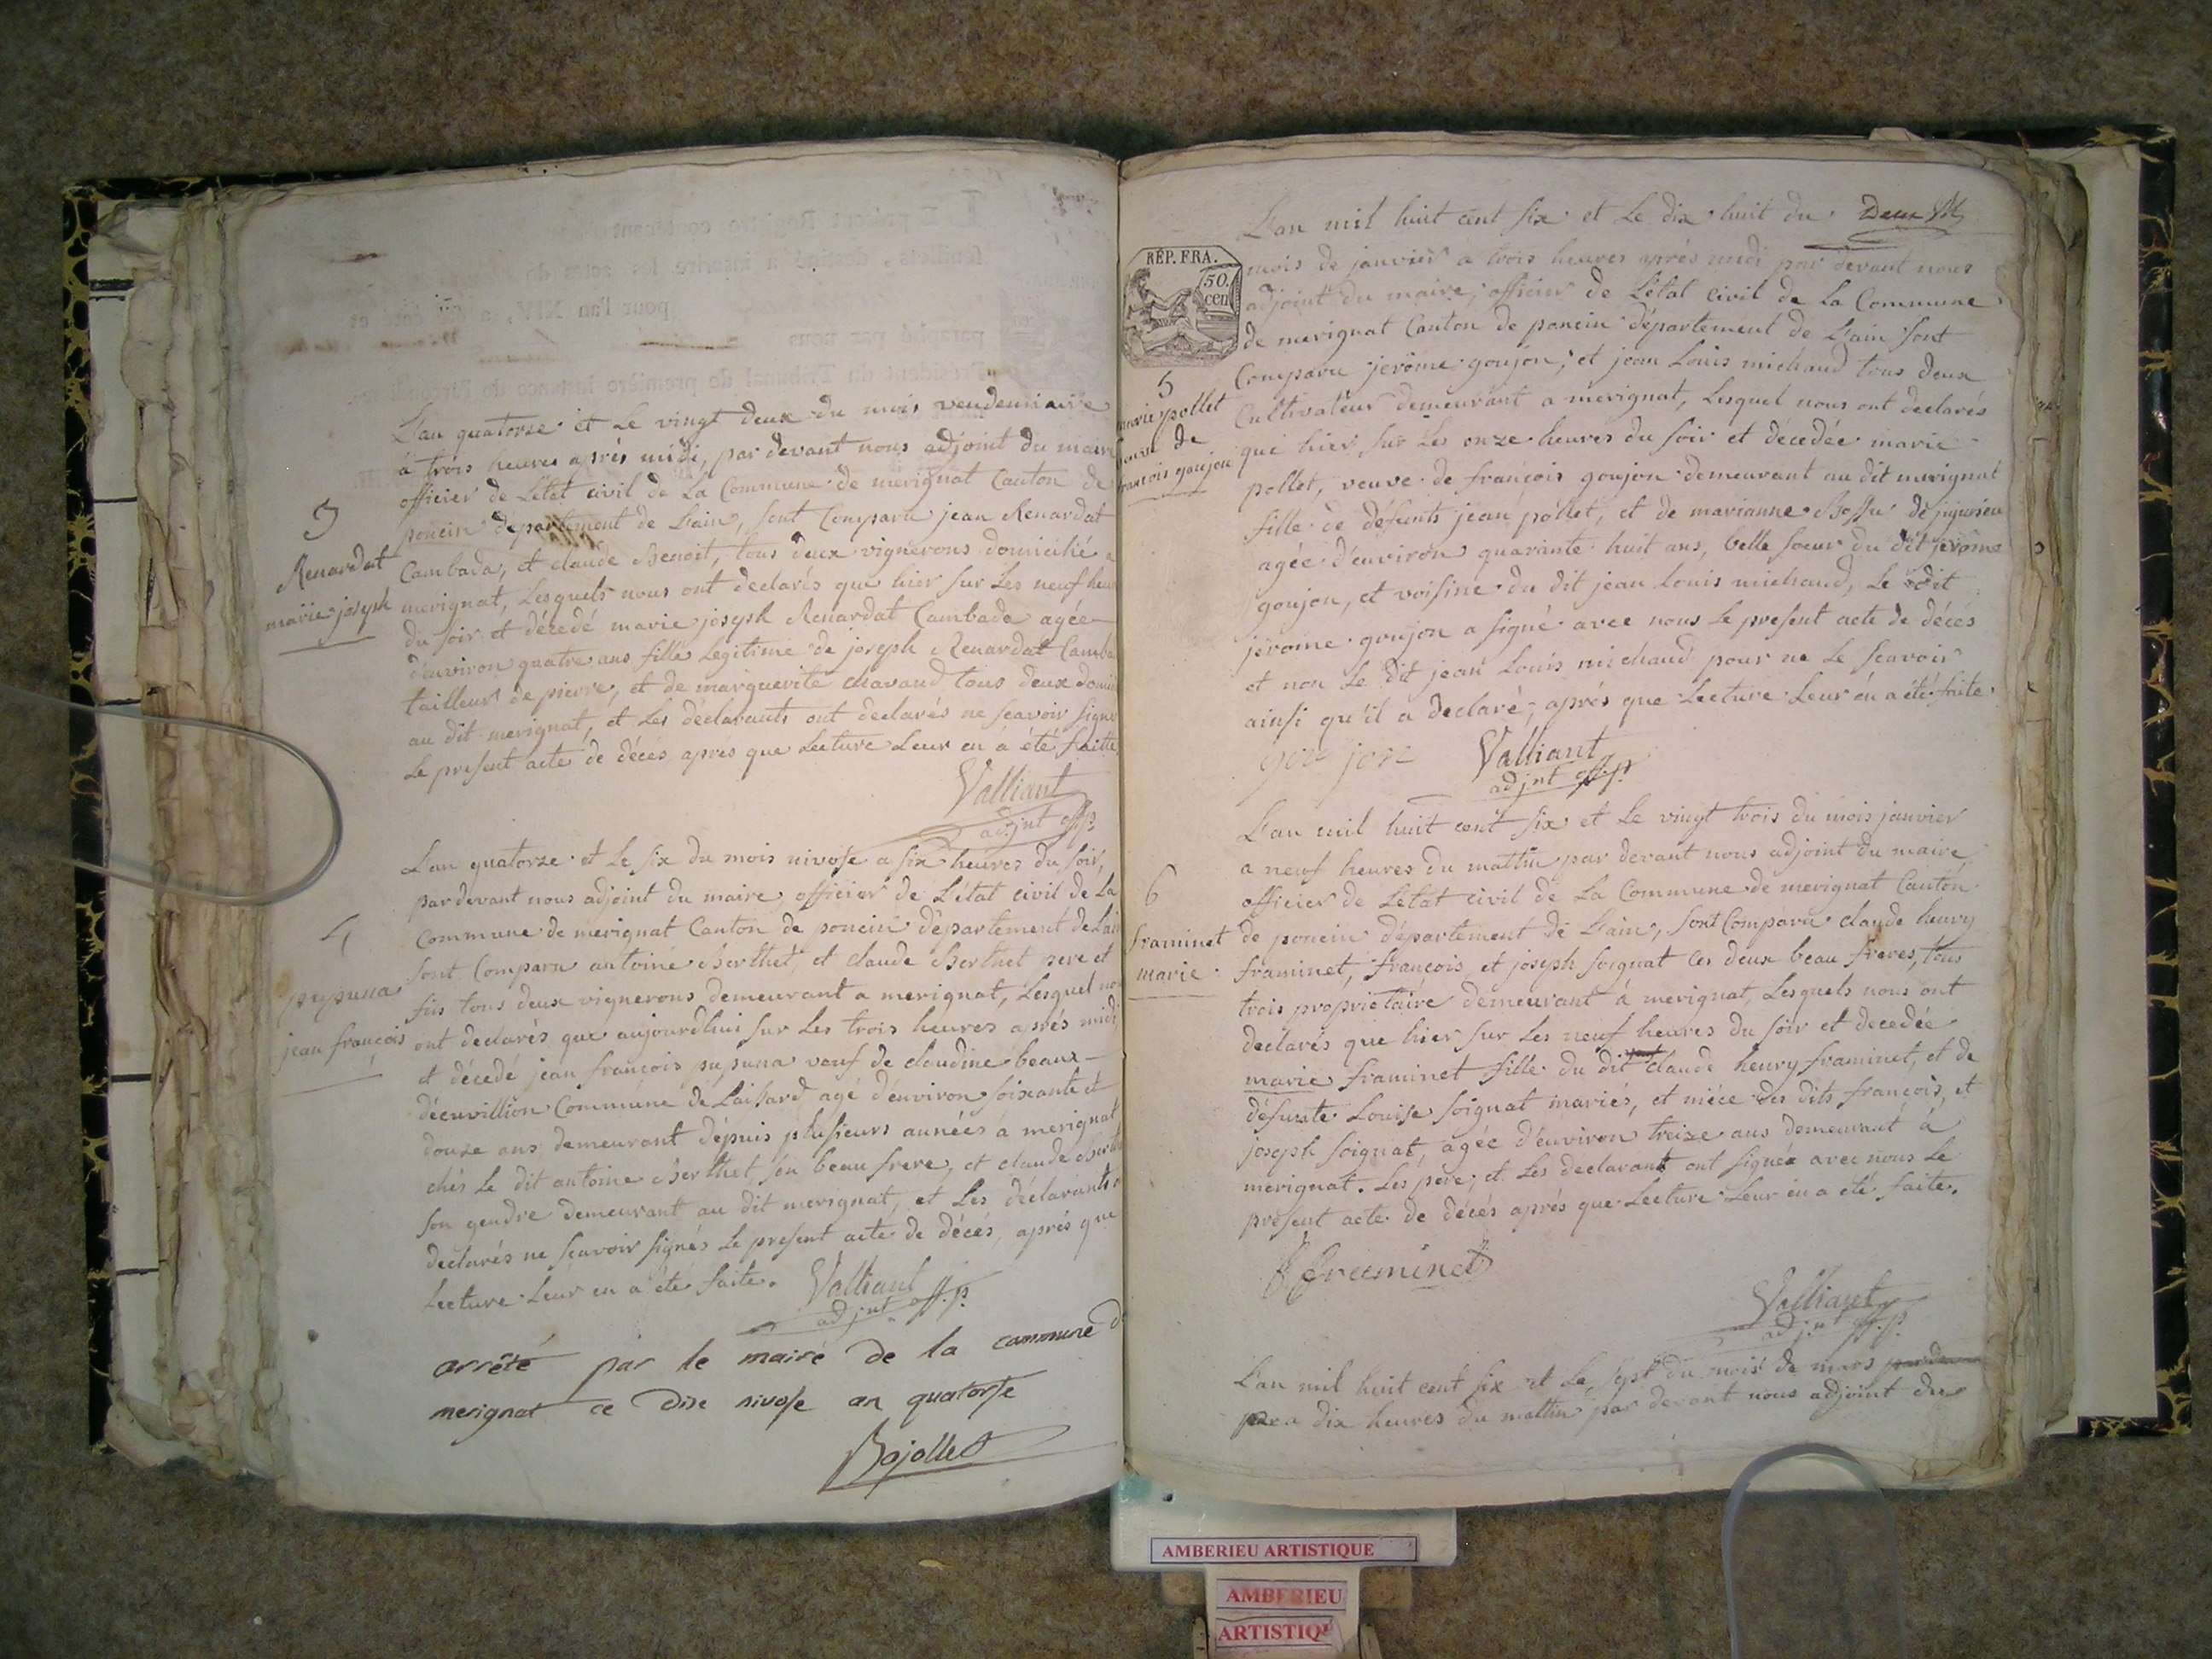 L'an quatorze et le vingt deux du mois vendemiaire
à trois heures après midi, par devant nous adjoint du maire
officier de Létat civil de La Commune de merignat Canton de
poncin département de L'ain, sont Comparu jean Renardat
Cambada, et claude Benoit, tous deux vignerons domicilié a
merignat, Lesquels nous ont declarés que hier sur Les neuf heu
du soir et décedé marie joseph Renardat Cambada agée
d'environ quatre ans fille Legitime de joseph Renardat Camba
tailleur de pierre, et de marguerite chavand tous deux domi
au dit merignat, et Les déclarants ont declarés ne scavoir signe
Le present acte de décés après que Lecture Leur en a été faitte
3
Renardat
marie joseph
Valliant
adjnt off. p.
L'an quatorze et Le six du mois nivose a six heures du soir,
pardevant nous adjoint du maire officier de L'état civil de La
Commune de merignat Canton de poncin département de L'ain
sont Comparu antoine Berthet, et claude Berthet pere et
fils tous deux vignerons demeurant a merignat, Lesquel no
ont declarés que aujourdhui sur Les trois heures après midi
et décedé jean françois pupuna veuf de claudine beaux
décuvillion Commune de Laissard agé d'environ soixante et
douze ans demeurant dépuis plusieurs années à merignat
chés Le dit antoine Berthet son beau frere, et claude Berth
son gendre demeurant au dit merignat, et Les déclarants o
declarés ne scavoir signés Le present acte de décés, après que
Lecture Leur en a été faite.
4
pupuna
jean françois
Valliant
adjnt off. p.
arrêté par le maire de la commune d
merignat ce dix nivose an quatorse
Bojollet
L'an mil huit cent six et Le dix huit du Deux
mois de janvier à trois heures après midi par devant nous
adjoint du maire, officier de Létat civil de La Commune
de merignat Canton de poncin département de L'ain sont
Comparu jerôme goujon, et jean Louis michaud tous deux
Cultivateur demeurant a merignat, Lesquel nous ont declarés
que hier, sur Les onze heures du soir et décedée marie
pollet, veuve de françois goujon demeurant au dit merignat
fille de défunts jean pollet, et de marianne Bossu de jujurieu
agée d'environ quarante huit ans, belle soeur du dit jerôme
goujon, et voisine du dit jean Louis michaud, Le dit
jerome goujon a signé avec nous Le present acte de décés
et non Le dit jean Louis michaud pour ne Le scavoir
ainsi qu'il a declaré, après que Lecture Leur en a été faite.
RÉP. FRA.
50.
cen
5
marie pollet
veuve de
francois goujon
goujon Valliant
adjnt off. p.
L'an mil huit cent six et Le vingt trois du mois janvier
a neuf heures du mattin par devant nous adjoint du maire,
officier de Létat civil de La Commune de merignat Canton
de poncin département de L'ain, sont Comparu claude henry
framinet, françois, et joseph soignat Ces deux beau freres, tous
trois proprietaire demeurant à merignat, Lesquels nous ont
declarés que hier sur Les neuf heures du soir et decedée
marie framinet fille du dit claude henry framinet, et de
défunte Louise soignat mariés, et niéce des dits françois, et
joseph soignat, agée d'environ treize ans demeurant à
merignat. Les pere, et Les declarant ont signée avec nous Le
present acte de décés après que Lecture Leur en a été faite.
6
framinet
marie
framinet
Valliant
adjnt off. p.
L'an mil huit cent six et Le sept du mois de mars
a dix heures du mattin par devant nous adjoint du
AMBERIEU ARTISTIQUE
AMBERIEU
ARTISTIQU